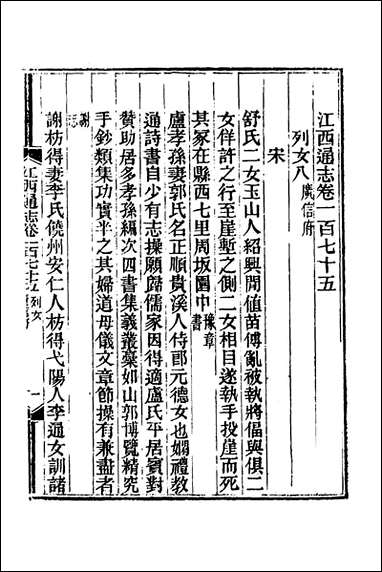 江西通志卷一百七十五
列女八廣信府
宋
舒氏二女玉山人紹興間值苗傅亂被執將偪與俱二
女佯許之行至崖塹之側二女相目遂執手投崖而死
其冢在縣西七里周坂園中豫章書
盧孝孫妻郭氏名正順貴溪人侍郎元德女也嫺禮教
通詩書自少有志操願歸儒家因得適盧氏平居賓對
贊助居多孝孫編次四書集義叢藁如山郭博覽精究
手鈔類集功實半之其婦道母儀文章節操有兼盡者
謝志
謝枋得妻李氏饒州安仁人枋得弋陽人李通女訓諸
江西通志卷一百七十五 列女 一